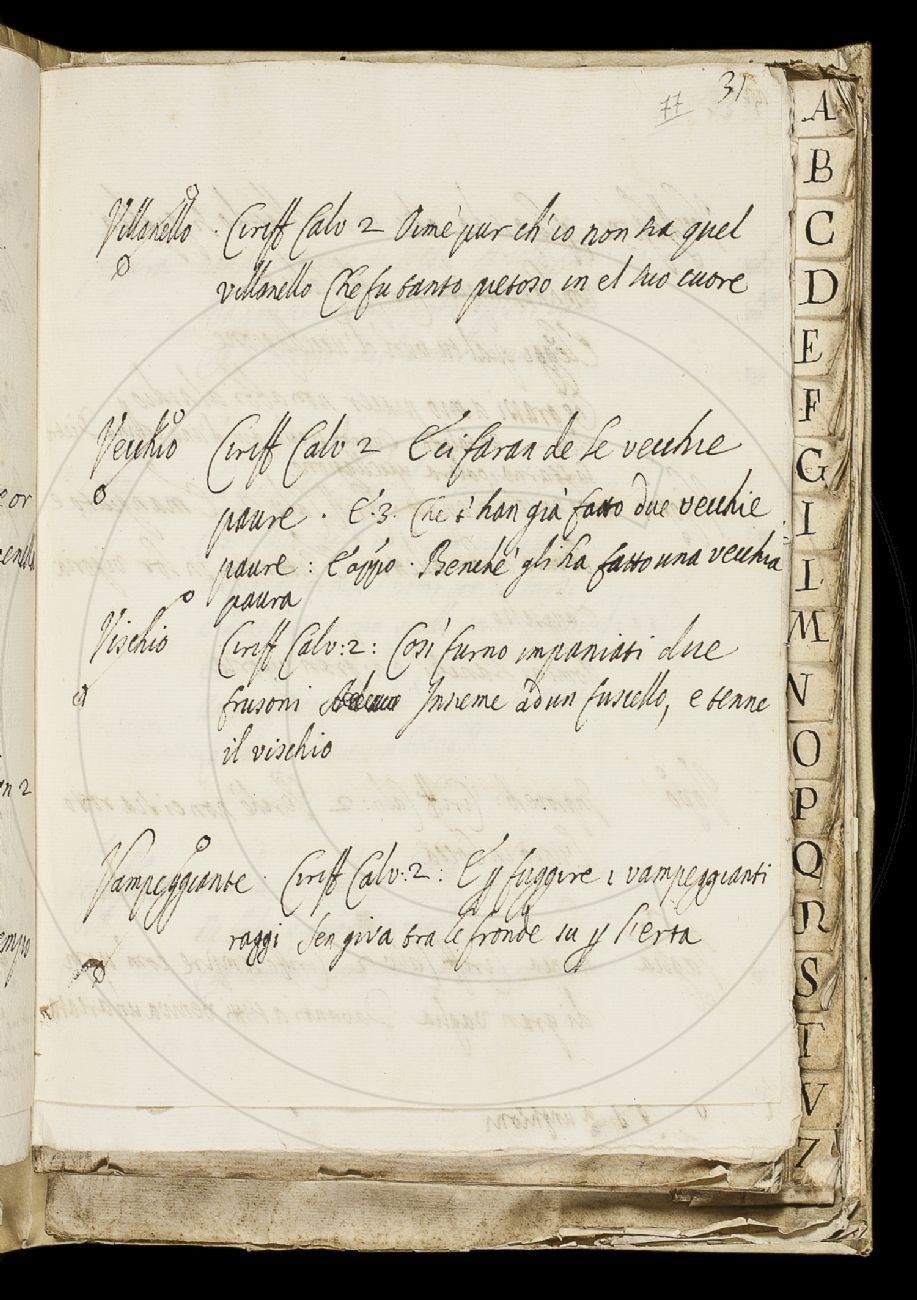 31
77
Villanello . Ciriff Calv 2 Oimè pur ch'io non ha quel
villanello Che fu tanto pietoso in el suo cuore
Vecchio Ciriff Calv 2 E ci faran de le vecchie
paure . E . 3 . Che t'han già fatto due vecchie
paure : E appo . Benché gli ha fatto una vecchia
paura
Vischio Ciriff Calv : 2 : Così furno impaniati due
frusoni Insieme ad un fuscello, e tenne
il vischio
Vampeggiante . Ciriff Calv : 2 : E p fuggire i vampeggianti
raggi Sen giva tra le fronde su p l'erta
A
B
C
D
E
F
G
I
L
M
N
O
P
Q
R
S
T
V
Z
or
n 2
empo